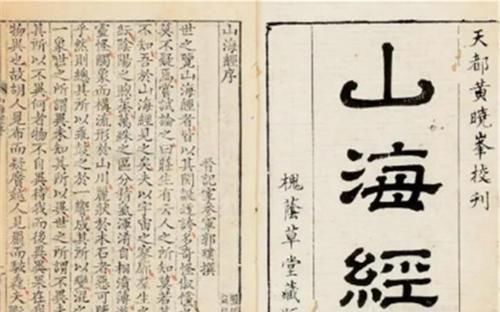 天都黃曉峯校刊
山海經
槐蔭草堂藏版
山海經序
晉記室參軍郭璞撰
世之覽山海經者皆以其閎誕迂誇多奇怪俶儻之
莫不疑焉嘗試論之曰莊生有云人之所知莫若其
不知吾於山海經見之矣夫以宇宙之寥廓羣生之
紜陰陽之煦蒸萬殊之區分精氣渾淆自相濆薄遊
靈怪觸象而構流形於山川麗狀於木石者惡可勝
乎然則總其所以乖鼓之於一響成其所以變混之
一象世之所謂異未知其所以異世之所謂不異
其所以不異何者物不自異待我而後異異果在我
物異也故胡人見布而疑黂越人見罽而駭毳夫